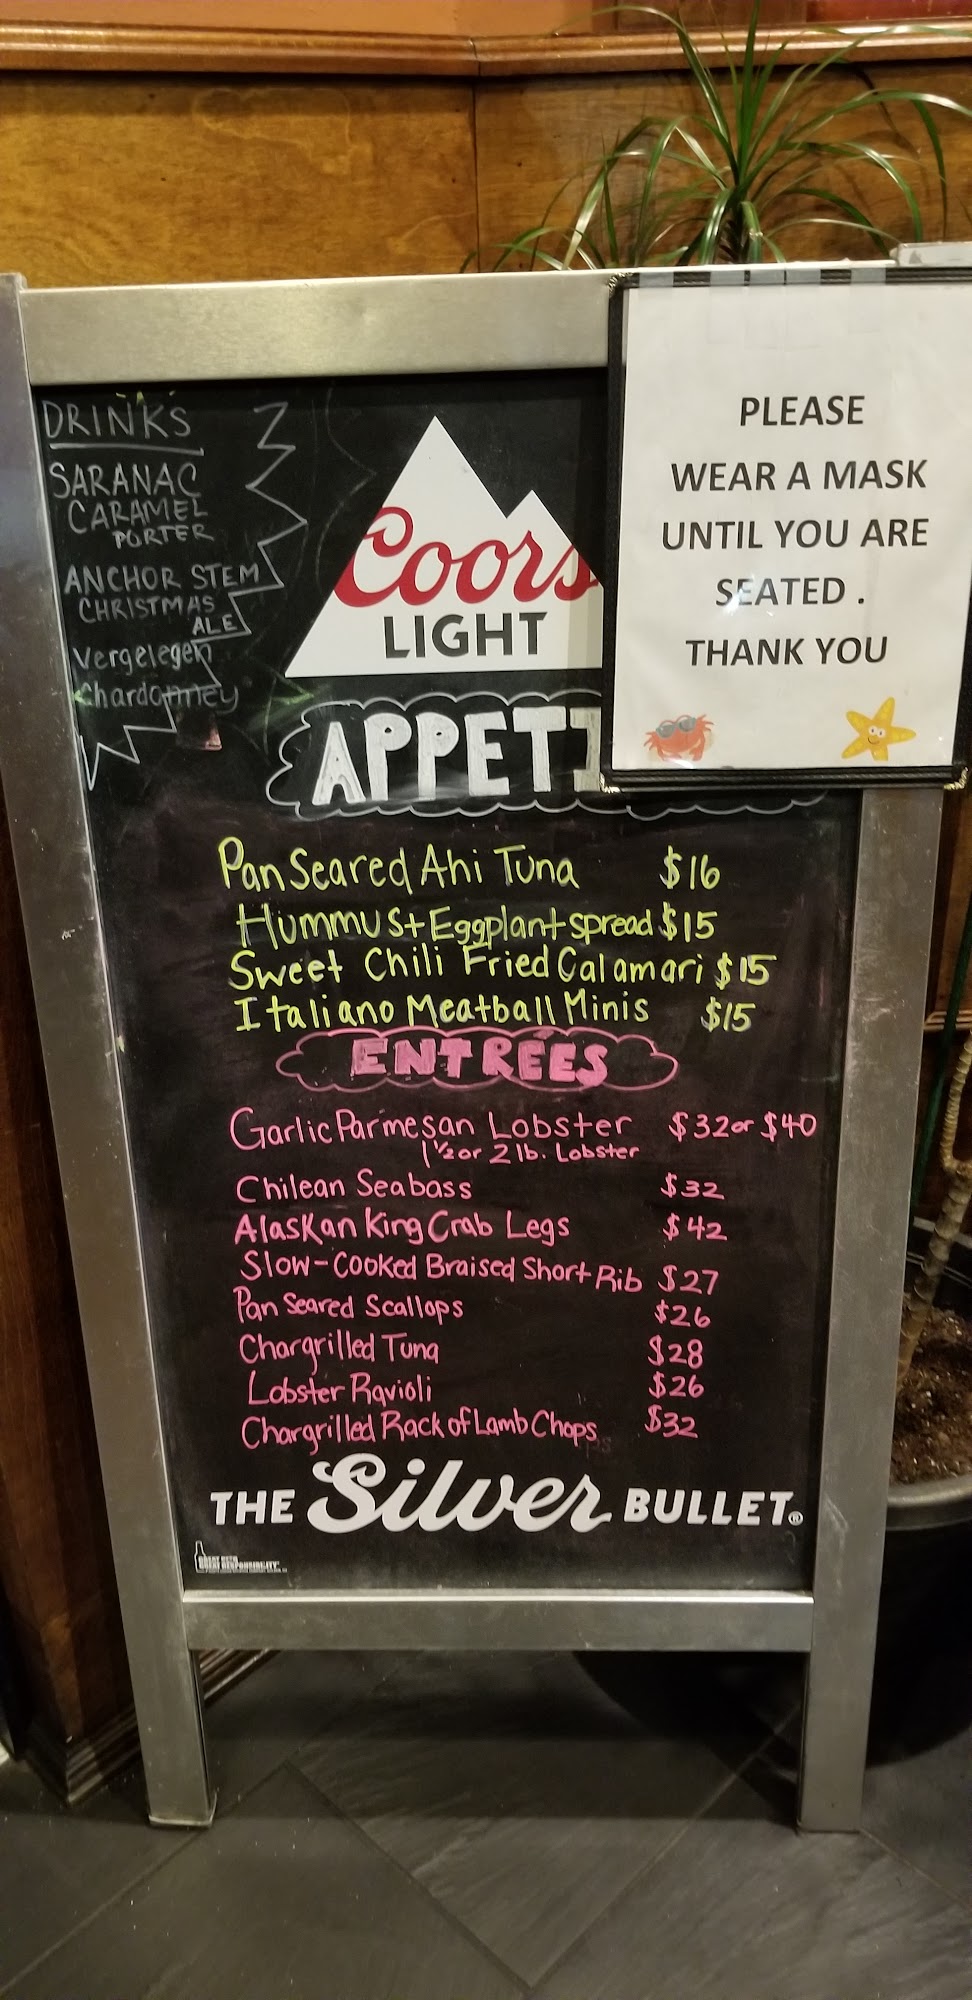 DRINKS
SARANAC
CARAMEL
PORTER
ANCHOR STEM
CHRISTMAS
ALE
Vergelegen
Chardonney
Coors
LIGHT
PLEASE
WEAR A MASK
UNTIL YOU ARE
SEATED .
THANK YOU
APPETI
Pan Seared Ahi Tuna $16
Hummus + Eggplant spread $15
Sweet Chili Fried Calamari $15
Italiano Meatball Minis $15
ENTRÉES
Garlic Parmesan Lobster $32 or $40
1 1/2 or 2 lb. Lobster
Chilean Seabass $32
Alaskan King Crab Legs $42
Slow-Cooked Braised Short Rib $27
Pan Seared Scallops $26
Chargrilled Tuna $28
Lobster Ravioli $26
Chargrilled Rack of Lamb Chops $32
THE Silver BULLET®
GREAT BEER
GREAT RESPONSIBILITY